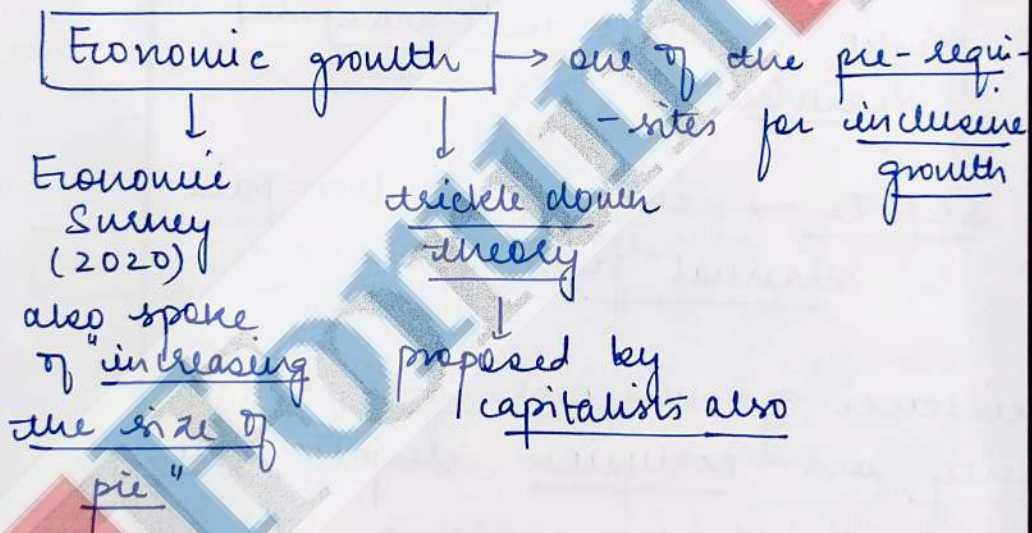 Economic growth → one of the pre-requi-
-sites for inclusive
growth
↓
Economic
Survey
(2020)
also spoke
of "increasing
the size of
pie"
↓
trickle down
theory
↓
proposed by
capitalists also
Forum